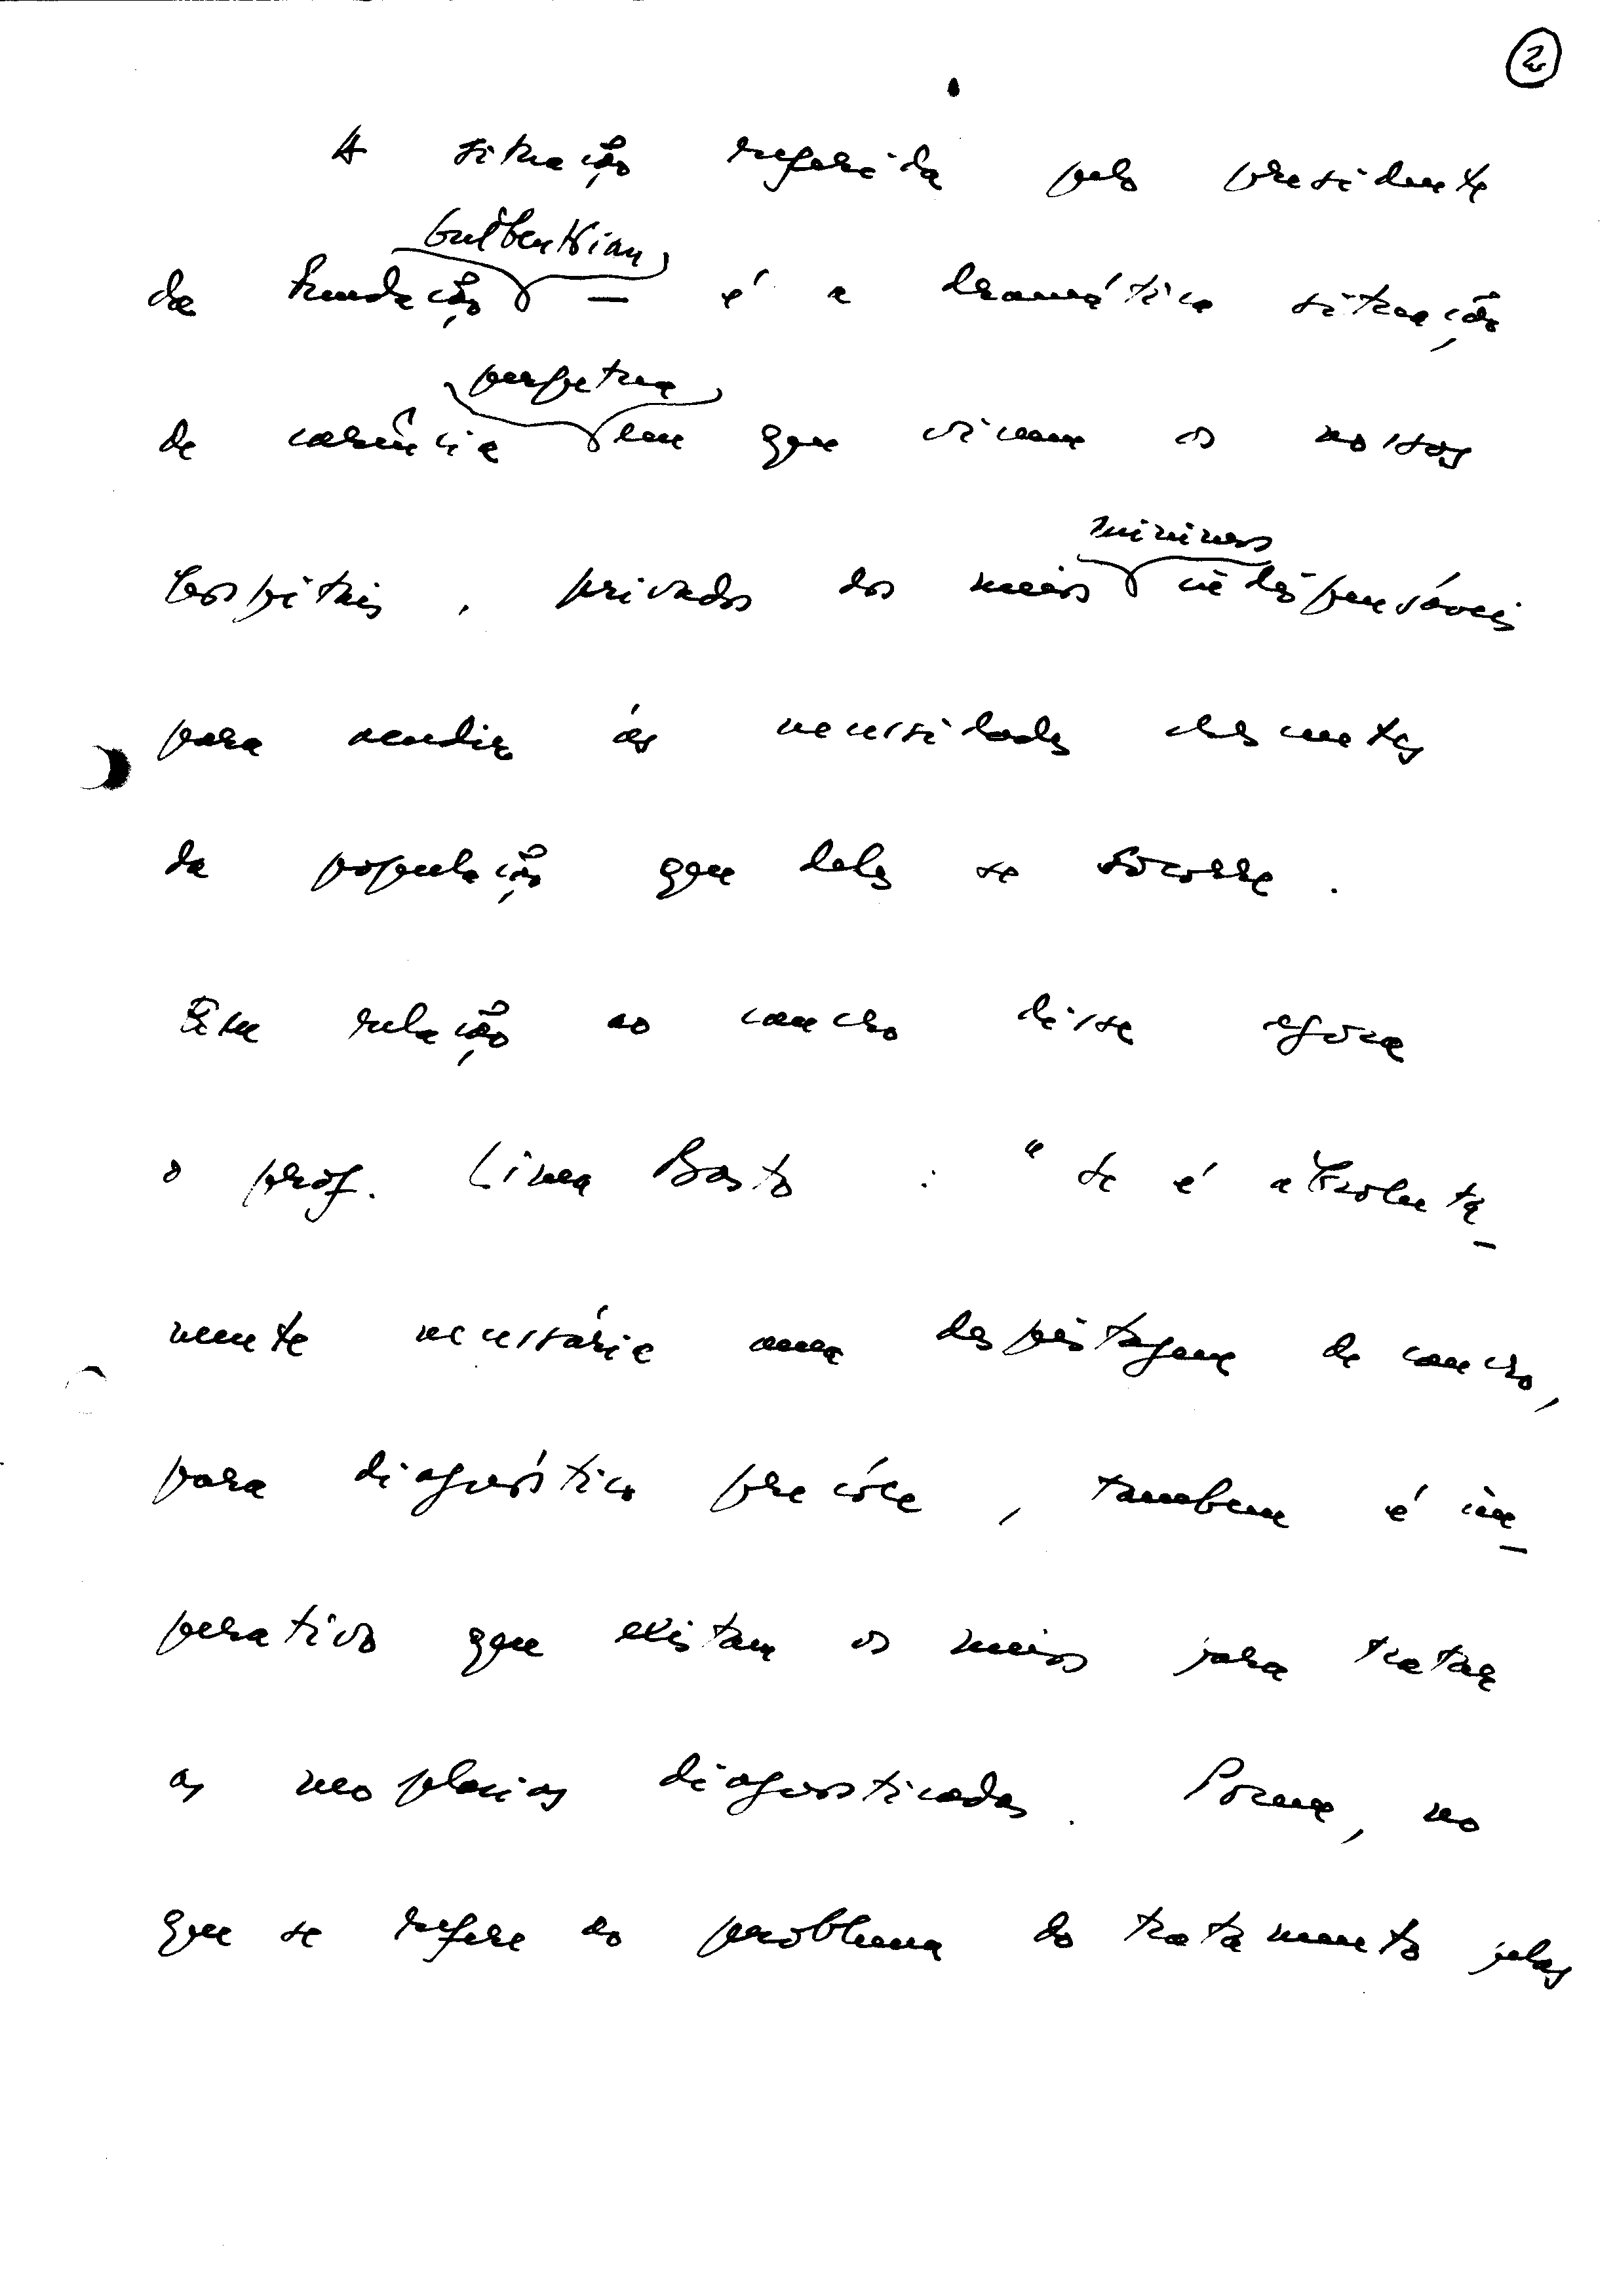 2
A situação referida pelo presidente
Gulbenkian
da Fundação — é a dramática situação
perpétua
de carência em que vivem os nossos
mínimos
hospitais, privados dos meios indispensáveis
para acudir às necessidades
da população que deles se socorre.
Em relação ao cancro disse agora
o prof. Lima Basto : "Se é absoluta-
mente necessária uma despistagem de cancro,
para diagnóstico precóce, tambem é im-
perativo que existam os meios para tratar
as neoplasias diagnosticadas. Porem, no
que se refere ao problema do tratamento pelas